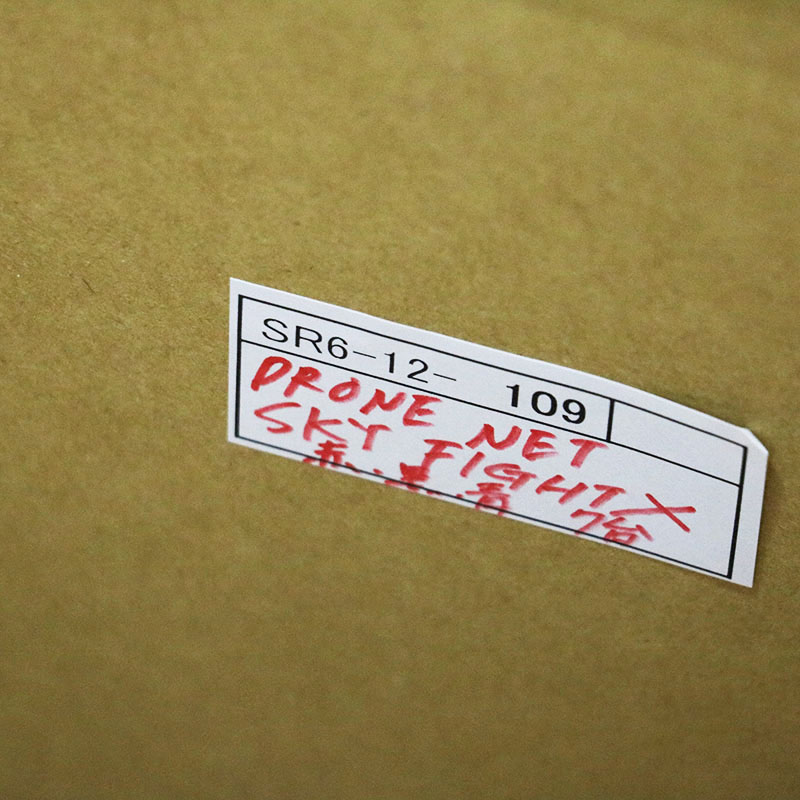 SR6-12- 109
DRONE NET
SKY FIGHT X
赤.黒.青 7台